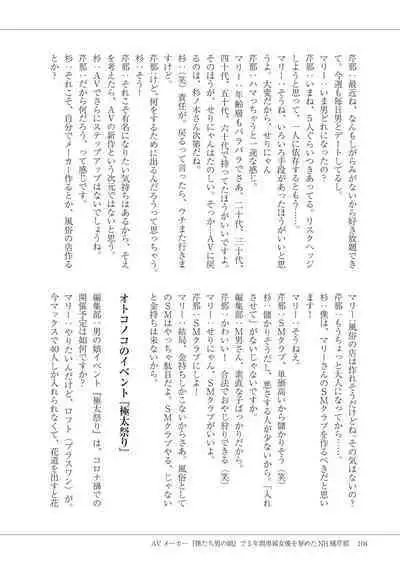 芹那：最近ね、なんもしがらみがないから好き放題でき
て、今週も毎日男とデートしてるし。
マリー：いま男どれになったの？
芹那：いまね、5人ぐらいつきあってる。リスクヘッジ
しようと思って、一人に依存するともう……。
マリー：そうね、いろいろ手段があったほうがいいと思
うよ。大変だから、せりにゃん
芹那：ハマっちゃうと一途な感じ。
マリー：年齢層もバラバラでさあ、二十代、三十代、
四十代、五十代、六十代で持ってたほうがいいですよ。
そのほうが、せりにゃんはたのしい。そっかーAVに戻
るのは、杉ノ木さん次第だね。
杉：（笑）責任が。戻るって言ったら、ウチまだ行きま
すけど。
芹那：けど、何をするために出るんだろうって思っちゃう。
杉：そう！
芹那：それこそ有名になりたい気持ちはあるから、そえ
を考えたら、AVの新作という次元ではないと思う。
杉：AVでさらにステップアップはないでしょうね。
芹那：だから何だろう、って感じです。
杉：それこそ、自分でメーカー作るとか、風俗の店作る
とか？
マリー：風俗の店は作れそうだけどね。その気はないの？
芹那：もうちょっと大人になってから……。
杉：僕は、マリーさんのSMクラブを作るべきだと思い
ます！
マリー：そうねえ。
芹那：SMクラブ、単価高いから儲かりそう（笑）
杉：儲かりそうだし、悪さする人が少ないから。「入れ
させて」がないじゃないですか。
編集部：M男さん、素直な子ばっかりだから。
芹那：かわいい！　合法でおやじ狩りできる！
マリー：せりにゃん、SMクラブがいいよ。
芹那：SMクラブにしよ！
マリー：結局、金持ちしかこないからさあ。風俗として
のSMはやっちゃ駄目だよ。SMクラブやる、じゃない
と金持ちは来ないから。
オトコノコのイベント『極太祭り』
編集部：男の娘イベント『極太祭り』は、コロナ禍での
開催予定は如何ですか？
マリー：やりたいんだけど、ロフト（プラスワン）が、
今マックスで40人しか入れられなくて、花道を出すと花
AVメーカー『僕たち男の娘』で5年間専属女優を努めたNH橘芹那　104